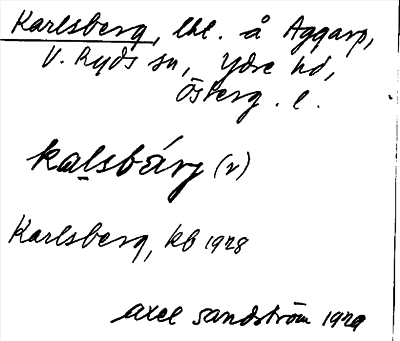 Karlsberg, lhl. å Aggarp,
V. Ryds sn, Ydre hd,
Österg. l.
kalsbárj (r)
Karlsberg, kb 1928
Axel Sandström 1929